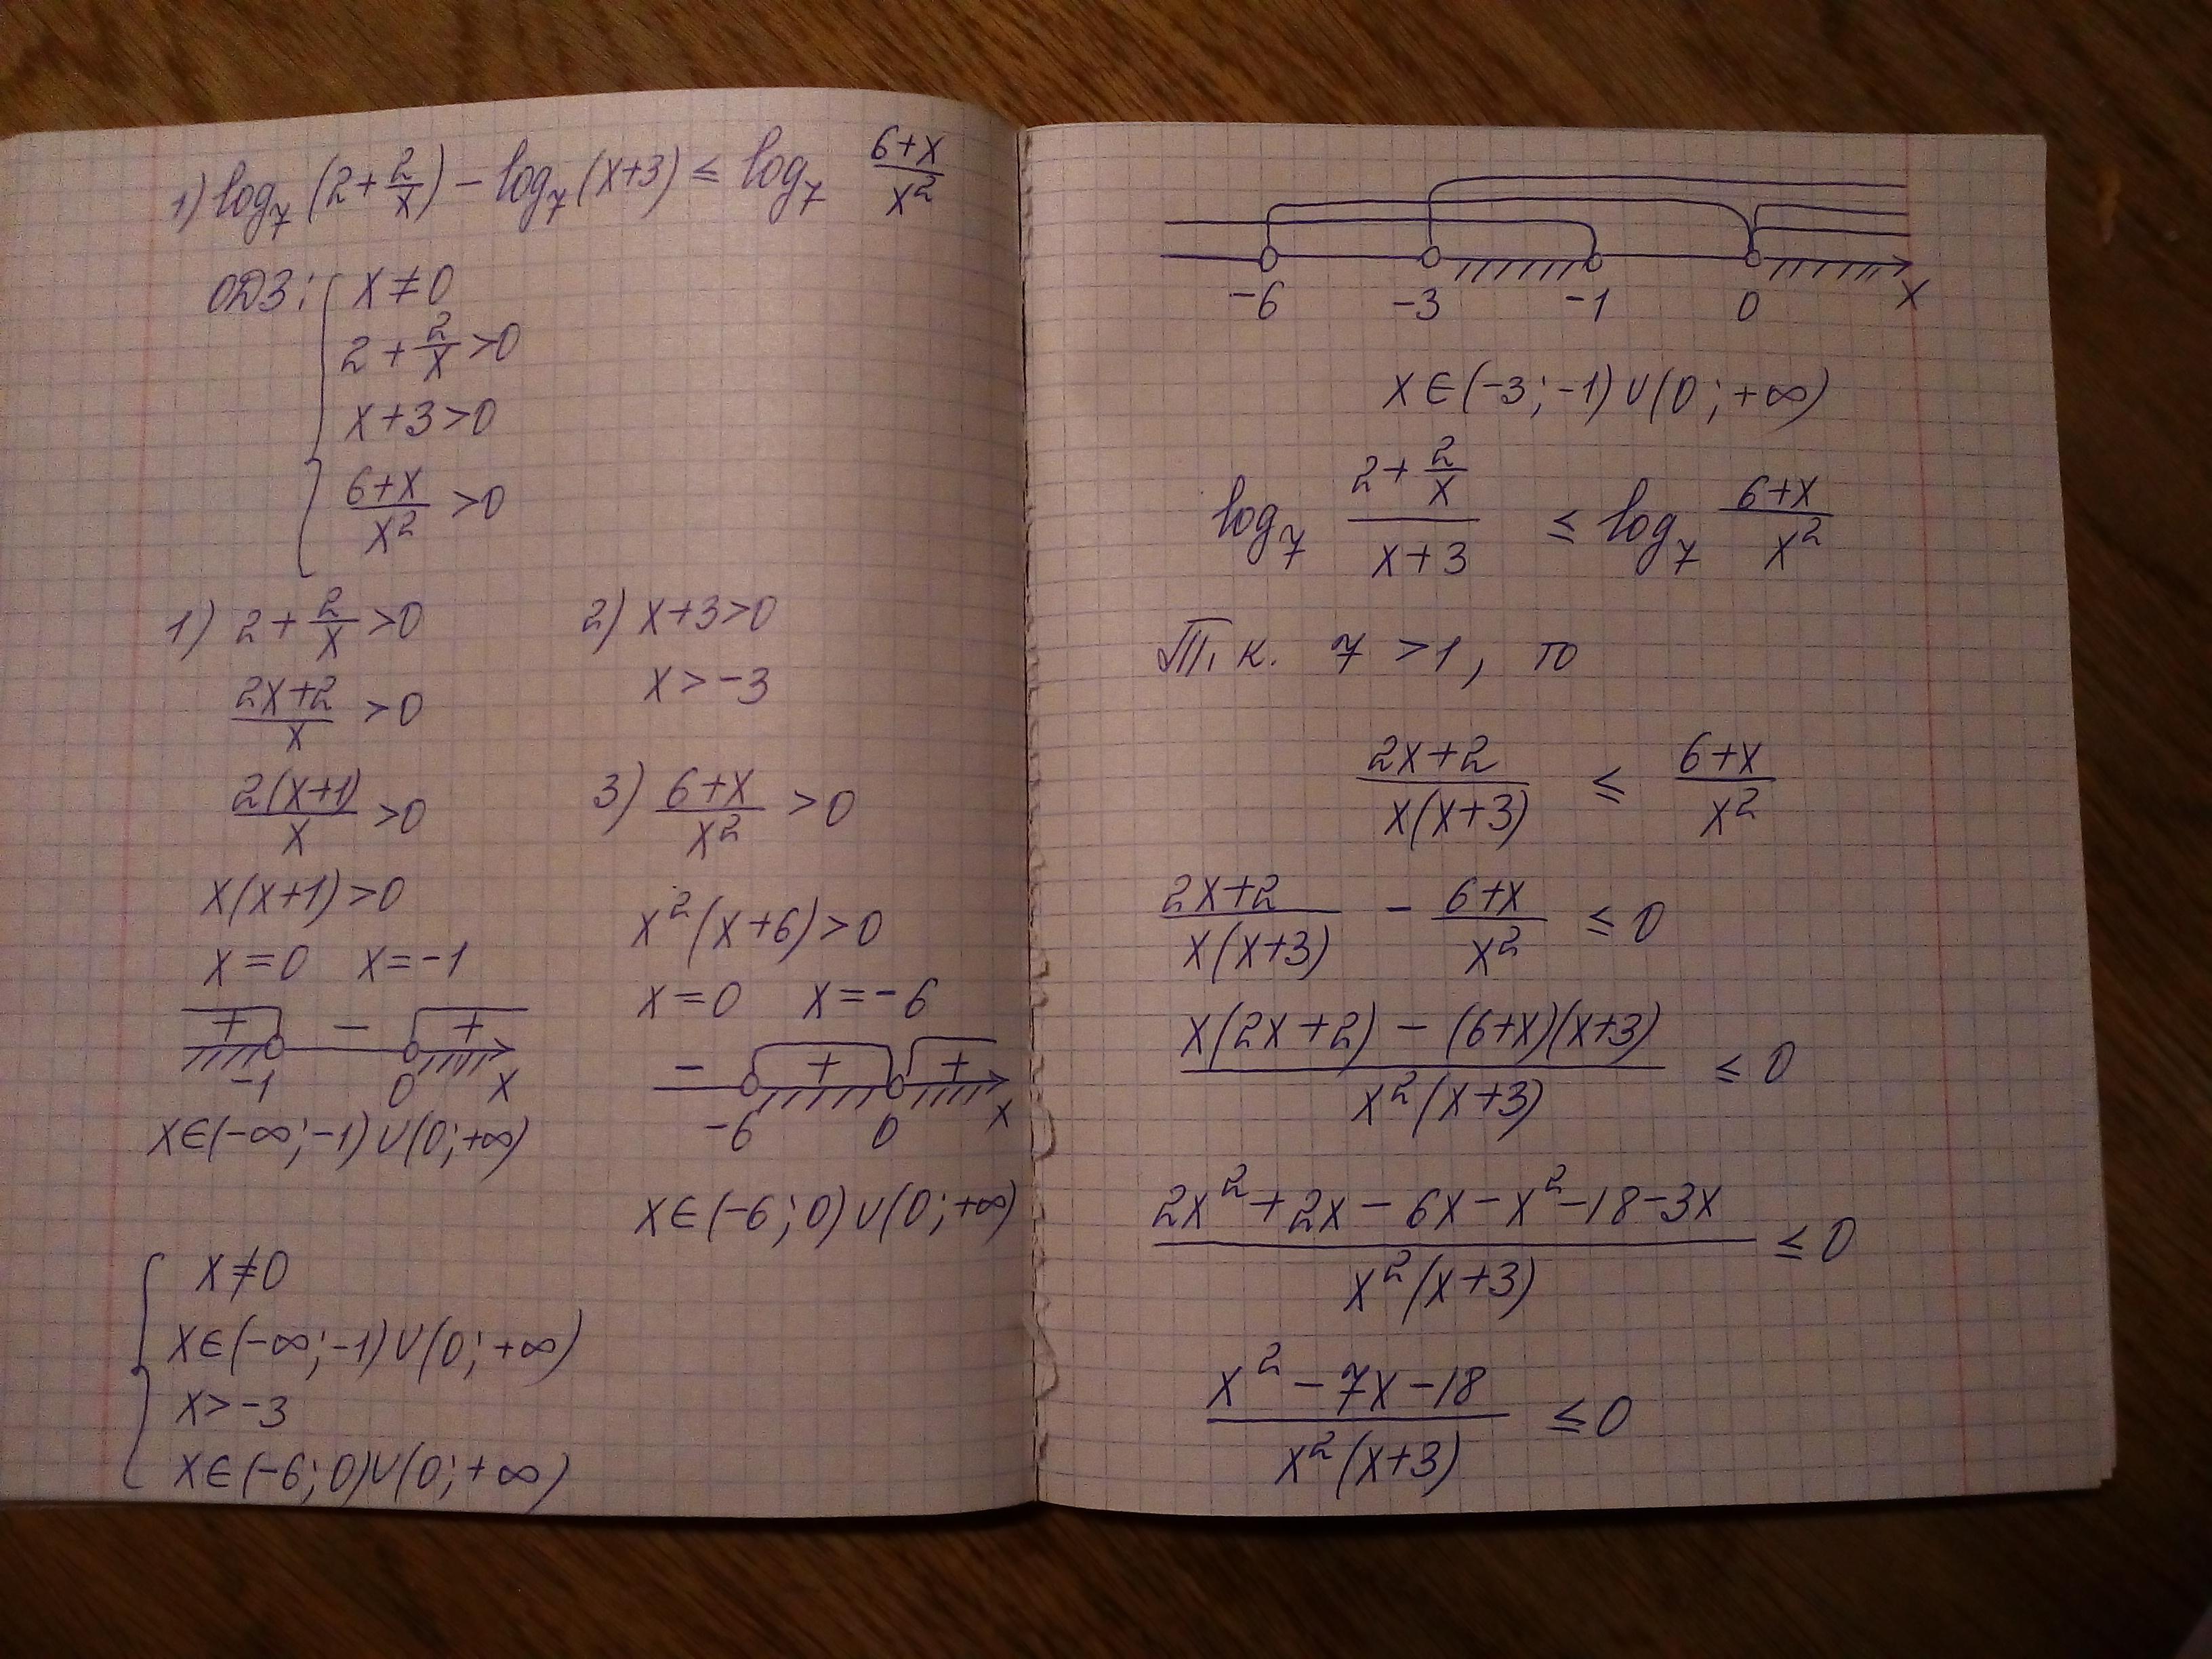 1) log₇ (2 + 2/x) − log₇ (x+3) ≤ log₇ (6+x)/x²
ОДЗ: { x ≠ 0
2 + 2/x > 0
x+3 > 0
(6+x)/x² > 0
1) 2 + 2/x > 0
(2x+2)/x > 0
2(x+1)/x > 0
x(x+1) > 0
x = 0 x = −1
+ − +
−1 0 x
x∈(−∞; −1)∪(0; +∞)
2) x+3 > 0
x > −3
3) (6+x)/x² > 0
x²(x+6) > 0
x = 0 x = −6
− + +
−6 0 x
x∈(−6; 0)∪(0; +∞)
{ x ≠ 0
x∈(−∞; −1)∪(0; +∞)
x > −3
x∈(−6; 0)∪(0; +∞)
−6 −3 −1 0 x
x∈(−3; −1)∪(0; +∞)
log₇ (2 + 2/x)/(x+3) ≤ log₇ (6+x)/x²
Т. к. 7 > 1, то
(2x+2)/(x(x+3)) ≤ (6+x)/x²
(2x+2)/(x(x+3)) − (6+x)/x² ≤ 0
(x(2x+2) − (6+x)(x+3))/(x²(x+3)) ≤ 0
(2x² + 2x − 6x − x² − 18 − 3x)/(x²(x+3)) ≤ 0
(x² − 7x − 18)/(x²(x+3)) ≤ 0